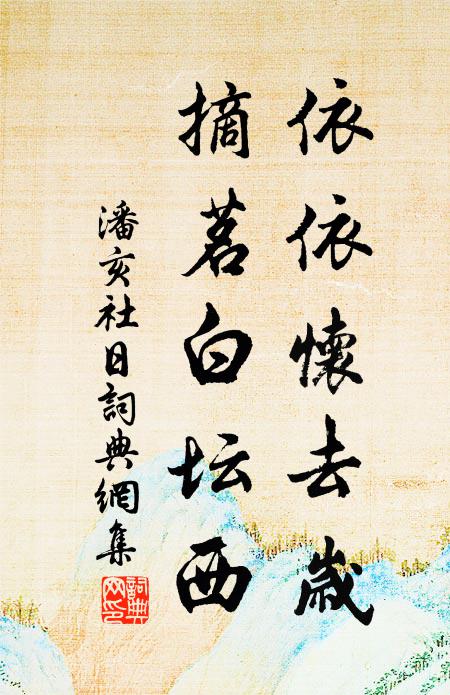 依依懷去歲
摘茗白坛西
潘亥社日詞典網集
詞典网印